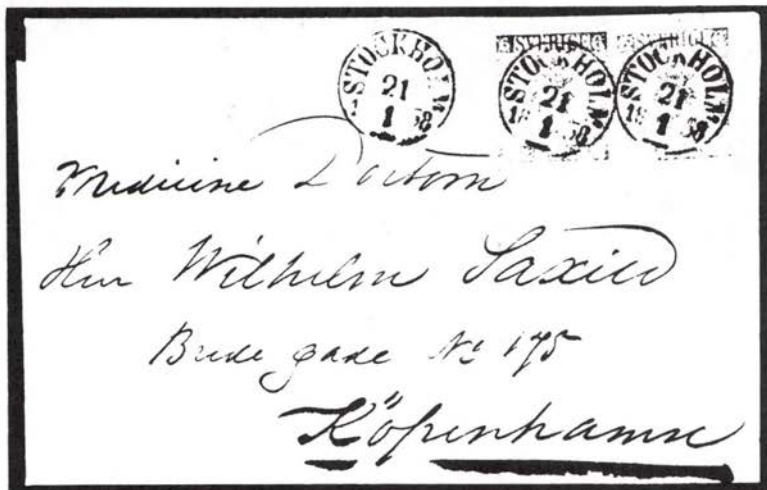 STOCKHOLM 21 1 1858
SVERIGE SVERIGE
STOCKHOLM 21 1 1858 STOCKHOLM 21 1 1858
Medicine Doctorn
Herr Wilhelm Saxild
Brede gade No 175
Köpenhamn